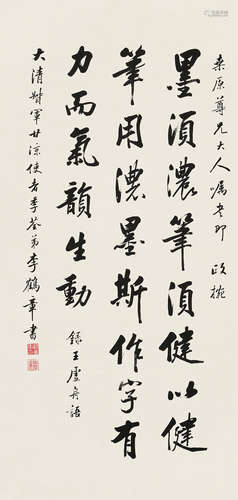 桬原尊兄大人属書即 政椀
墨須濃筆須健以健
筆用濃墨斯作字有
力而氣韻生動
錄王虛舟語
大清督軍甘涼使者李荃弟李鶴章書